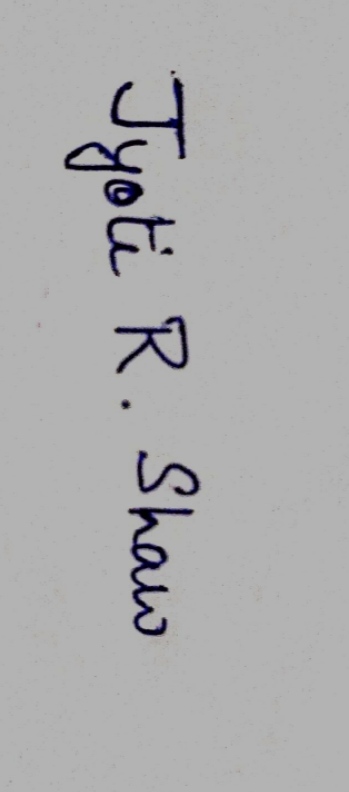 Jyoti R. Shaw